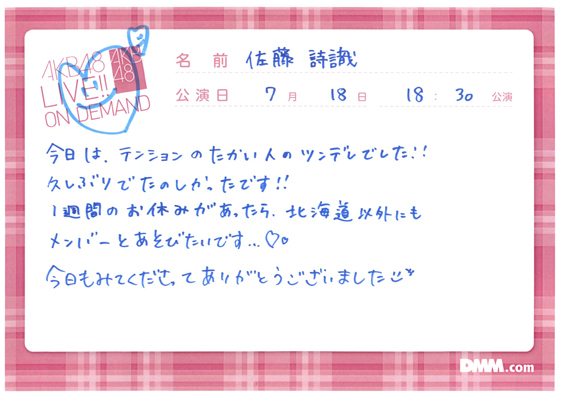 AKB48
LIVE!!
ON DEMAND
AKB
48
名前 佐藤 詩識
公演日 7月 18日 18:30 公演
今日は、テンションのたかい人のツンデレでした!!
久しぶりでたのしかったです!!
1週間のお休みがあったら、北海道以外にも
メンバーとあそびたいです...♡
今日もみてくださってありがとうございました
DMM.com